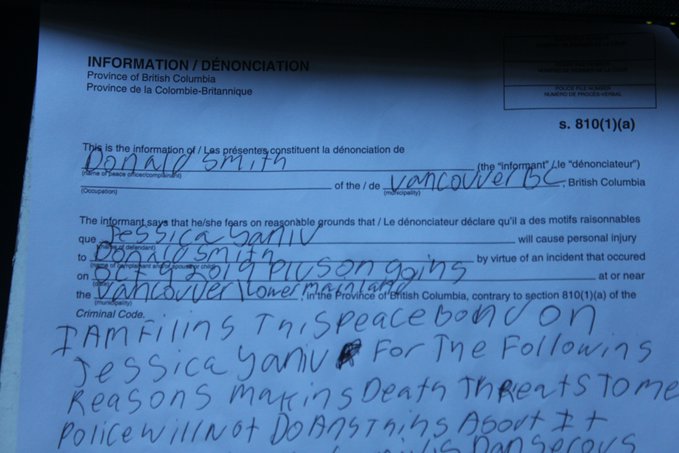 INFORMATION / DÉNONCIATION
Province of British Columbia
Province de la Colombie-Britannique
POLICE FILE NUMBER
NUMÉRO DE PROCÈS-VERBAL
s. 810(1)(a)
This is the information of / Les présentes constituent la dénonciation de
Donald Smith (the "informant" / le "dénonciateur")
(name of peace officer/complainant)
of the / de Vancouver BC, British Columbia
(Occupation) (municipality)
The informant says that he/she fears on reasonable grounds that / Le dénonciateur déclare qu'il a des motifs raisonnables
que Jessica Yaniv will cause personal injury
(name of defendant)
to Donald Smith by virtue of an incident that occured
(name of complainant and/or spouse or child)
on Oct 1 2019 plus on going at or near
(date)
the Vancouver / lower mainland, in the Province of British Columbia, contrary to section 810(1)(a) of the
(municipality)
Criminal Code.
I AM Filing This peace bond on
Jessica Yaniv For The Following
Reasons Making Death Threats To me
Police will Not Do Anything About It
Dangerous